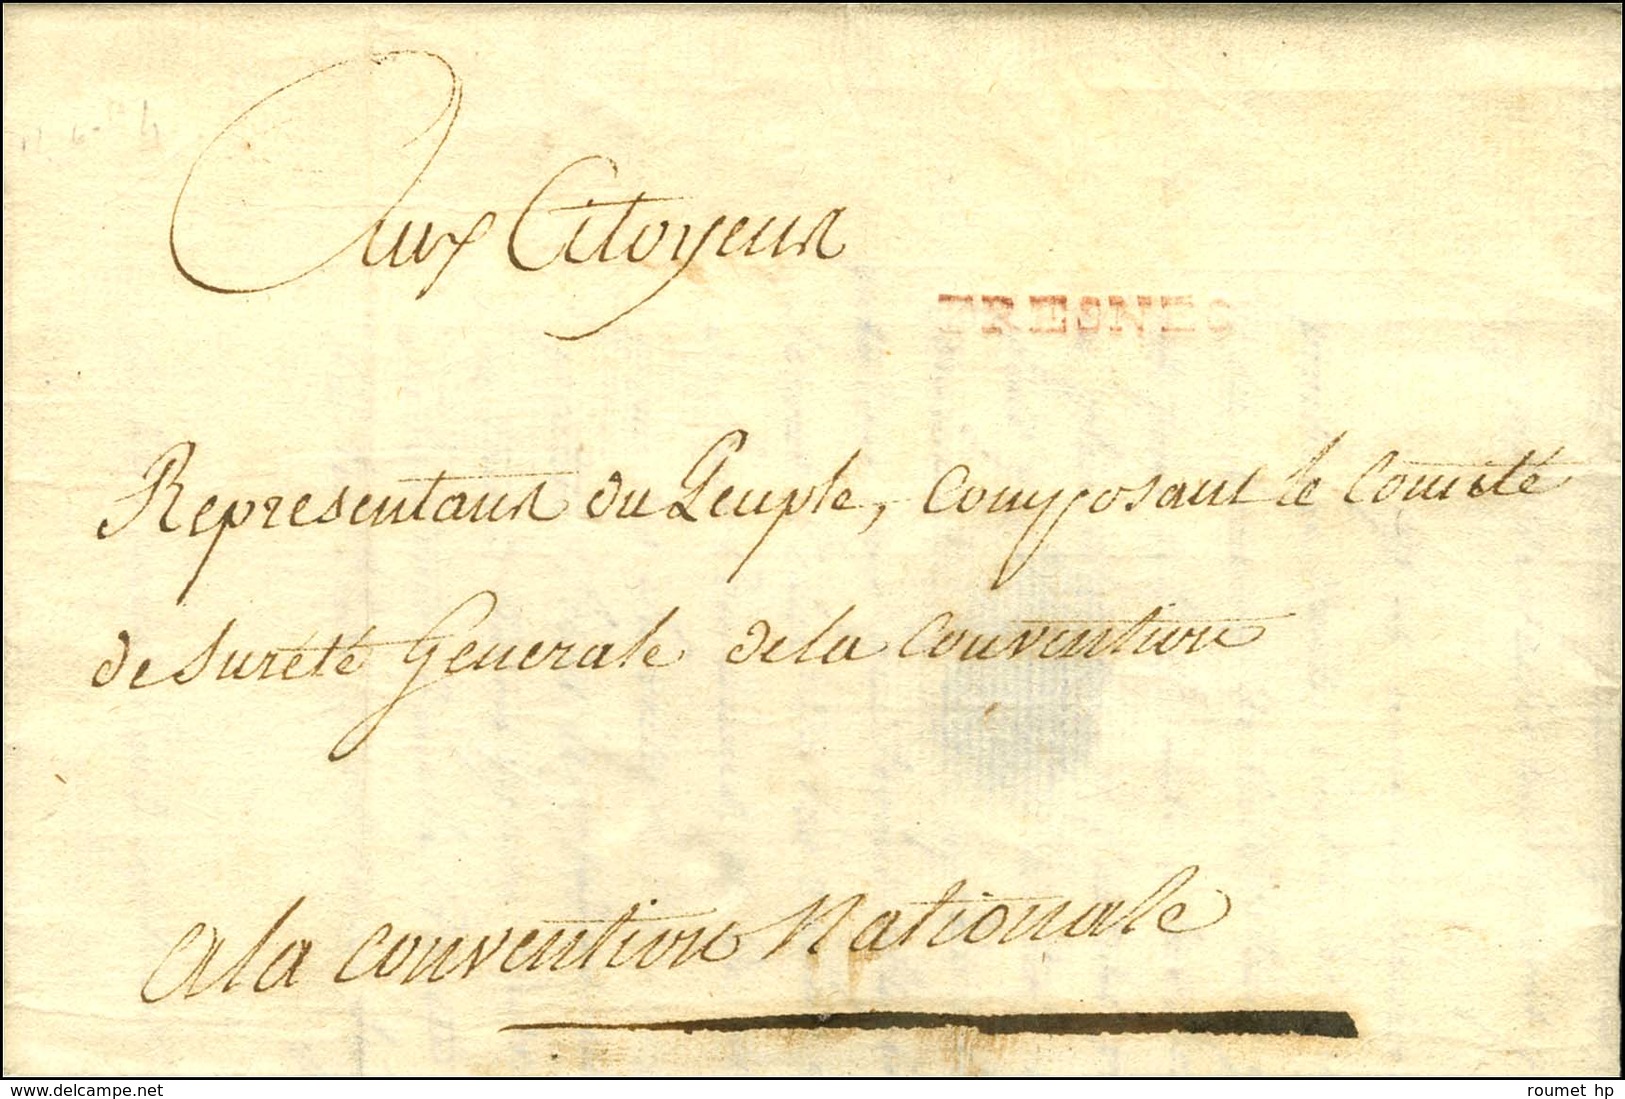 Aux Citoyens
FRESNES
Representans du Peuple, composant le Comité
de Sureté Generale de la Convention
a la Convention Nationale
www.delcampe.net
roumet hp